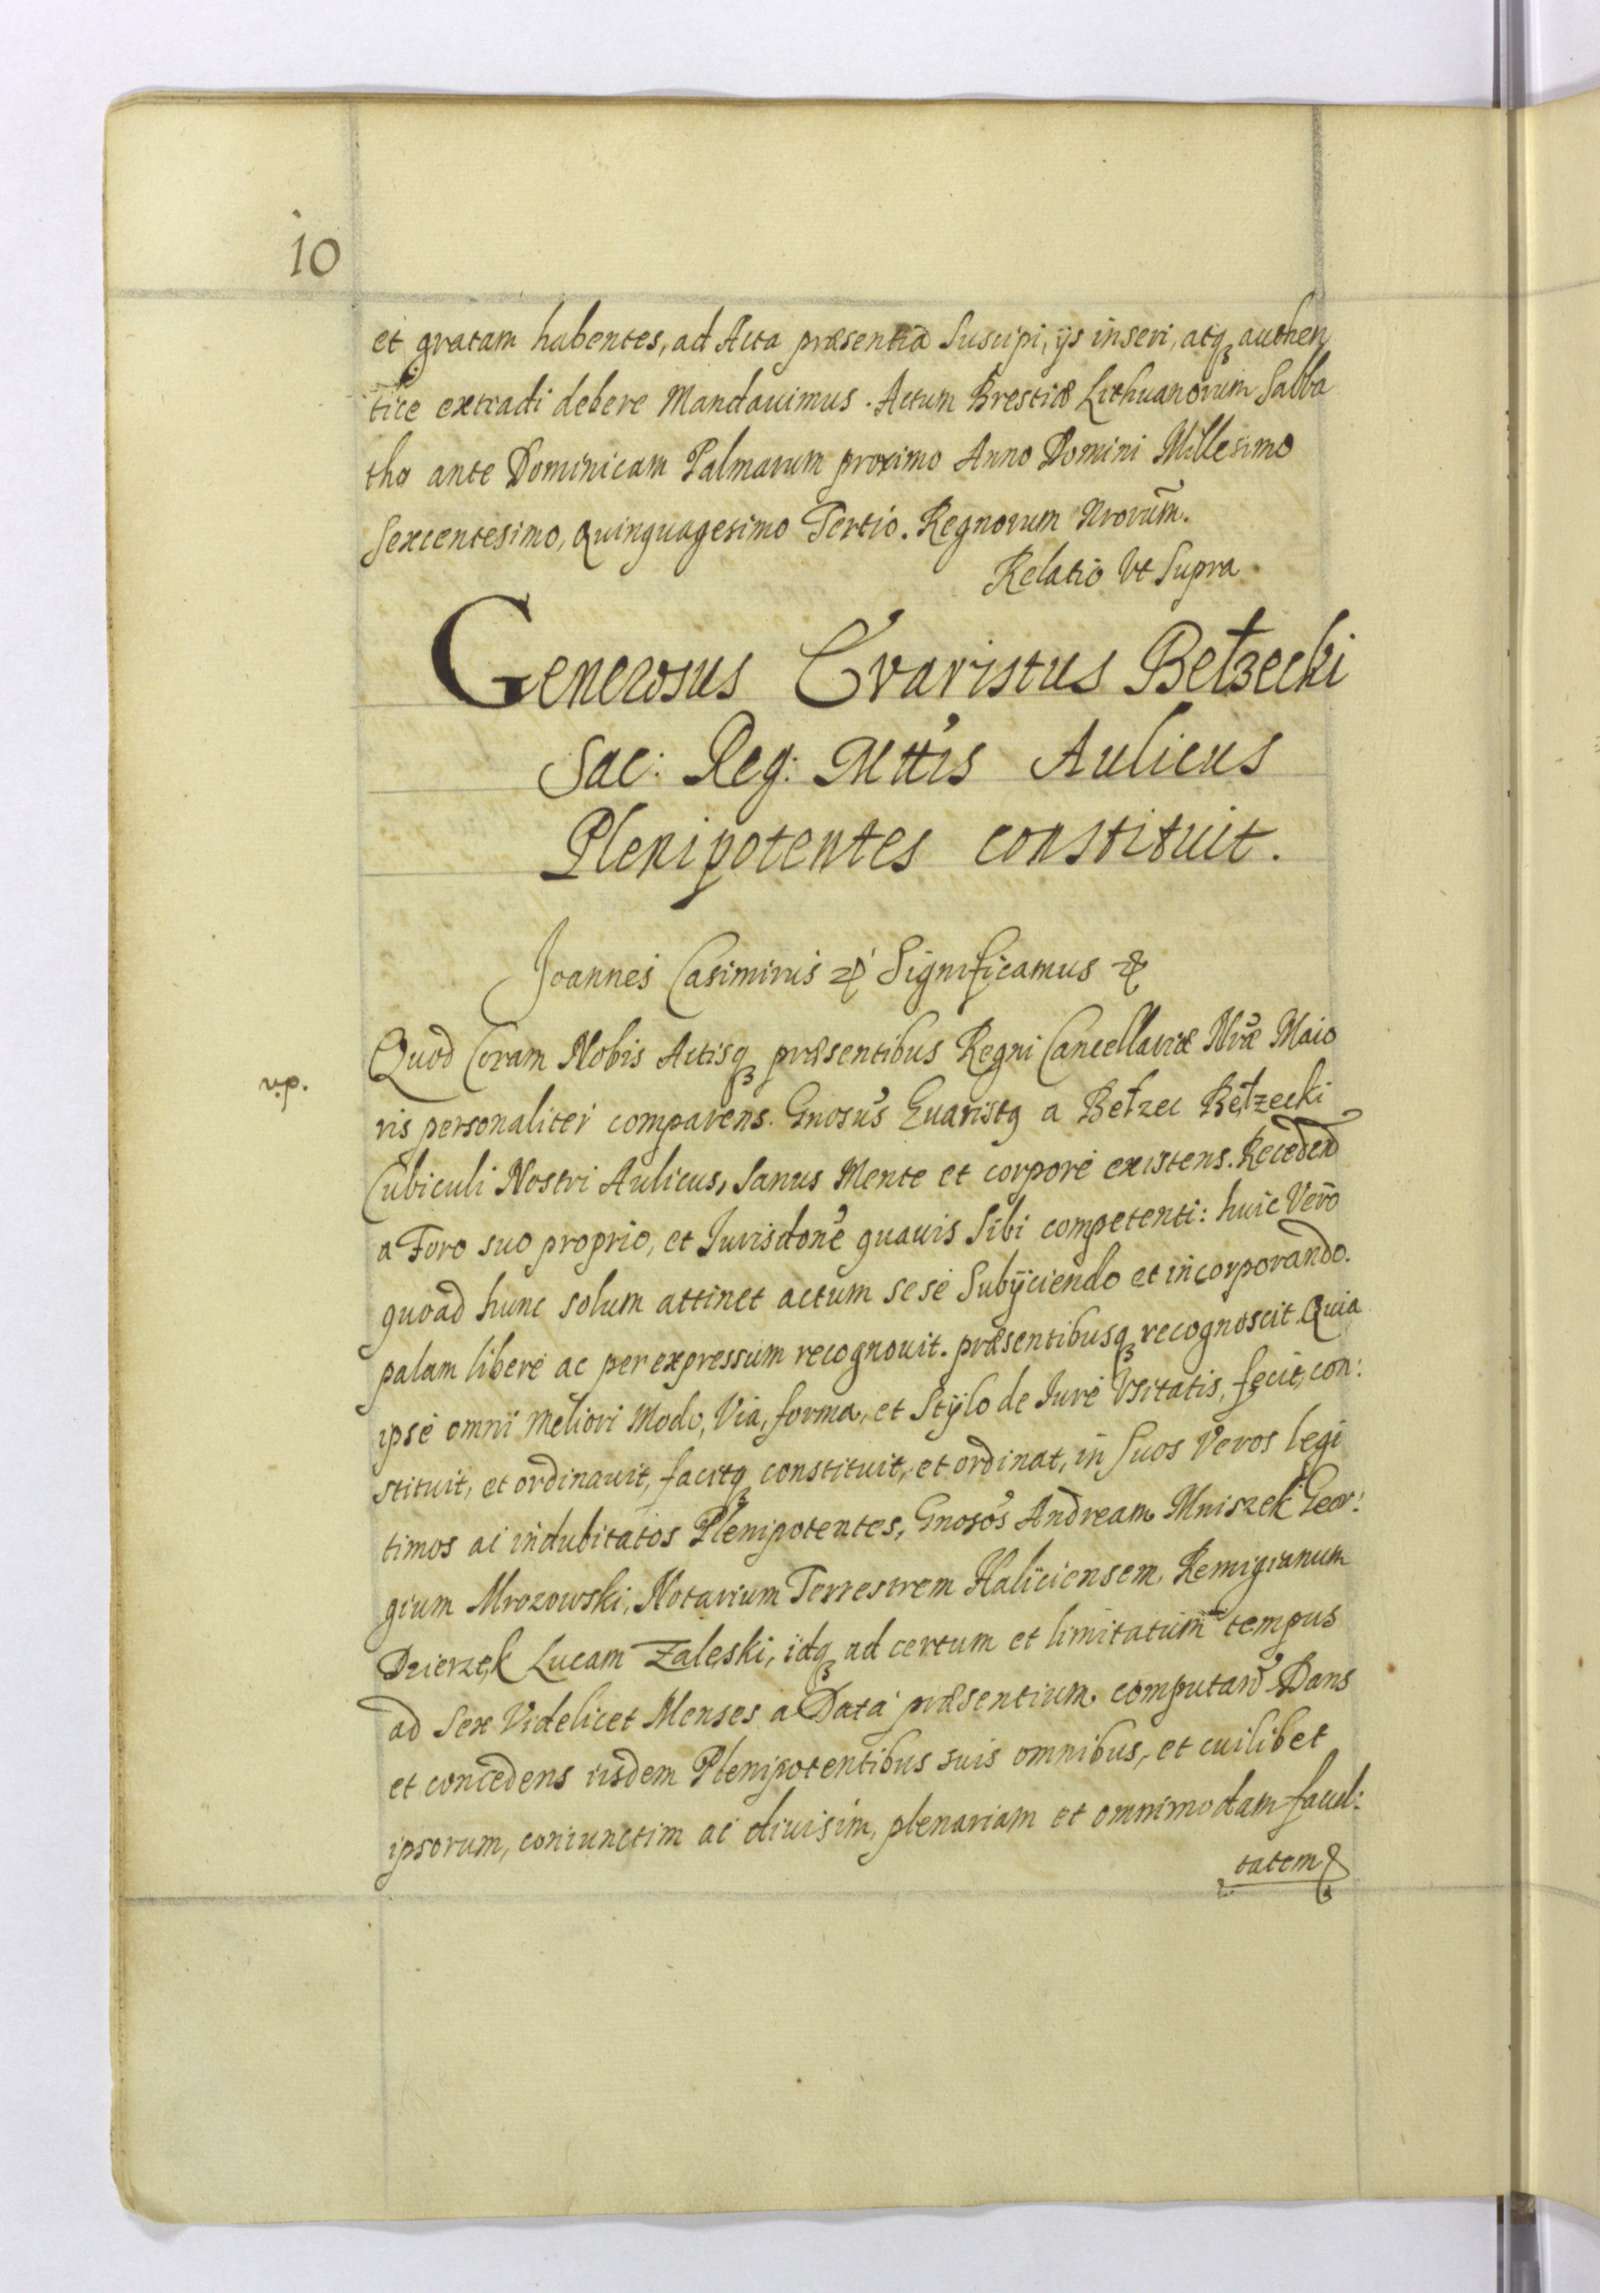 10
et gratam habentes, ad Acta præsentia Suscipi, ijs inseri, atqꝫ authen
tice extradi debere Mandauimus. Actum Brestiæ Lithuanorum Sabba
tho ante Dominicam Palmarum proximo Anno Domini Millesimo
Sexcentesimo, Quinquagesimo Tertio. Regnorum Nrorum̃.
Relatio Vt Supra.
Generosus Evaristus Bełzecki
Sac: Reg: Mttis Aulicus
Plenipotentes constituit.
Joannes Casimirus & Significamus &
Quod Coram Nobis Actisqꝫ præsentibus Regni Cancellariæ Nræ Maio
v.p.
ris personaliter comparens. Gnosus Euaristq a Bełzec Bełzecki
Cubiculi Nostri Aulicus, Sanus Mente et corpore existens. Recedend
a Foro suo proprio, et Jurisdone quauis Sibi competenti: huic Vero
quoad hunc solum attinet actum sese Subijciendo et incorporando.
palam libere ac per expressum recognouit. præsentibusqꝫ recognoscit Quia
ipse omni meliori Modo, Via, forma, et Stylo de Jure Vsitatis, fecit, con:
stituit, et ordinauit, facitqꝫ constituit, et ordinat, in Suos Veros legi
timos ac indubitatos Plenipotentes, Gnosos Andream Mniszek Geor:
gium Mrozowski, Notarium Terrestrem Haliciensem, Remigianum
Dzierzek Lucam Zaleski, idqꝫ ad certum et limitatum tempus
ad Sex Videlicet Menses a Data præsentium. computand Dans
et concedens iisdem Plenipotentibus suis omnibus, et cuilibet
ipsorum, coniunctim ac diuisim, plenariam et omnimodam facul:
tatem